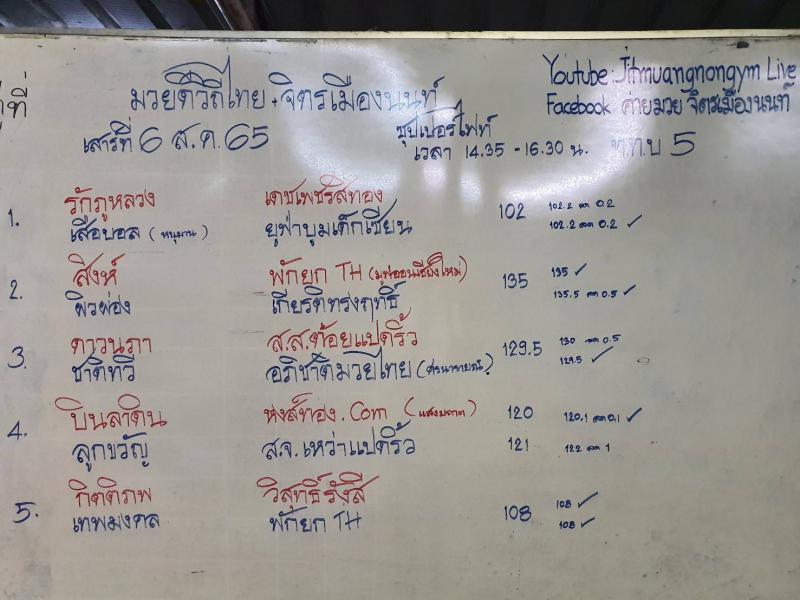 คู่ที่
มวยดีวิถีไทย + จิตรเมืองนนท์
Youtube: Jitmuangnongym Live
Facebook ค่ายมวย จิตรเมืองนนท์
เสาร์ที่ 6 ส.ค. 65
ซุปเปอร์ไฟท์
เวลา 14.35 - 16.30 น. ท.ท.บ 5
1. รักภูหลวง เดชเพชรสีทอง 102 102.2 ลด 0.2
เสือบอล (หนุมาน) ยูฟ่าบูมเด็กเซียน 102.2 ลด 0.2 ✓
2. สิงห์ พักยก TH 135 135 ✓
ผิวผ่อง เกียรติทรงฤทธิ์ 135.5 ลด 0.5 ✓
3. ดาวนภา ส.ส.ต้อยแปดริ้ว 129.5 130 ลด 0.5
ชาติทวี อภิชาติมวยไทย 129.5 ✓
4. บินลาดิน หงส์ทอง.Com 120 120.1 ลด 0.1 ✓
ลูกขวัญ ส.จ.เหว่าแปดริ้ว 121 122 ลด 1
5. กิตติภพ วิสุทธิ์รังสี 108 108 ✓
เทพมงคล พักยก TH 108 ✓